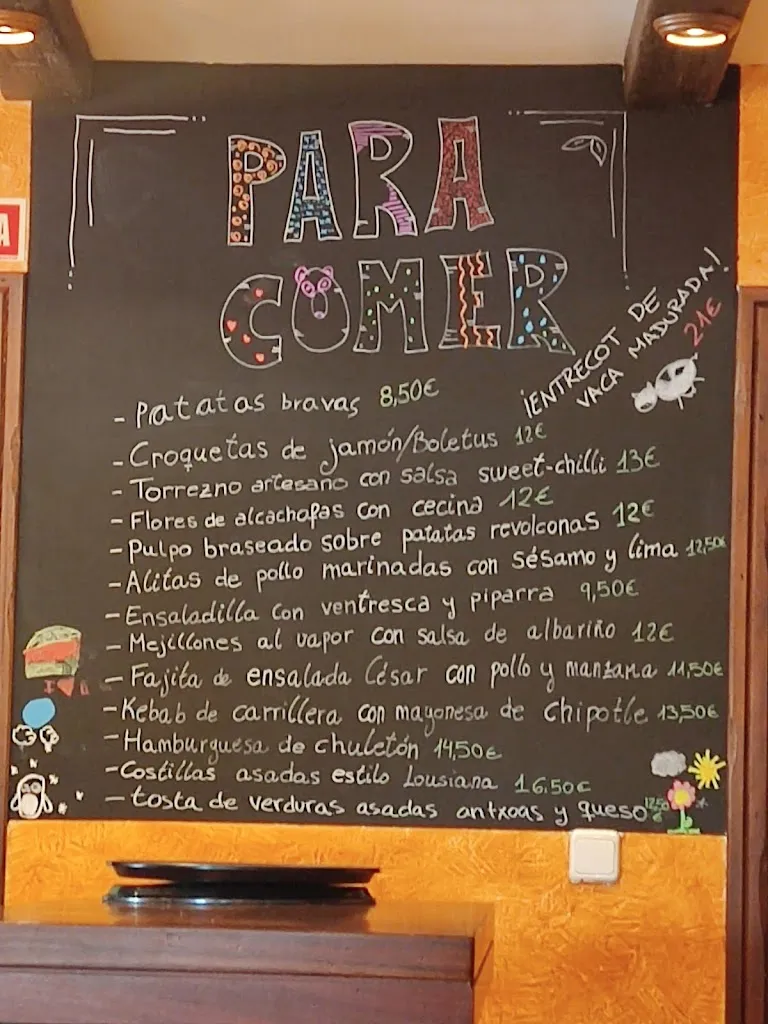 PARA
COMER
¡ENTRECOT DE
VACA MADURADA!
21€
- Patatas bravas 8,50€
- Croquetas de jamón/Boletus 12€
- Torrezno artesano con salsa sweet-chilli 13€
- Flores de alcachofas con cecina 12€
- Pulpo braseado sobre patatas revolconas 12€
- Alitas de pollo marinadas con sésamo y lima 12,50€
- Ensaladilla con ventresca y piparra 9,50€
- Mejillones al vapor con salsa de albariño 12€
- Fajita de ensalada César con pollo y manzana 11,50€
- Kebab de carrillera con mayonesa de chipotle 13,50€
- Hamburguesa de chuletón 14,50€
- Costillas asadas estilo Lousiana 16,50€
- tosta de verduras asadas antxoas y queso 12,50€
A